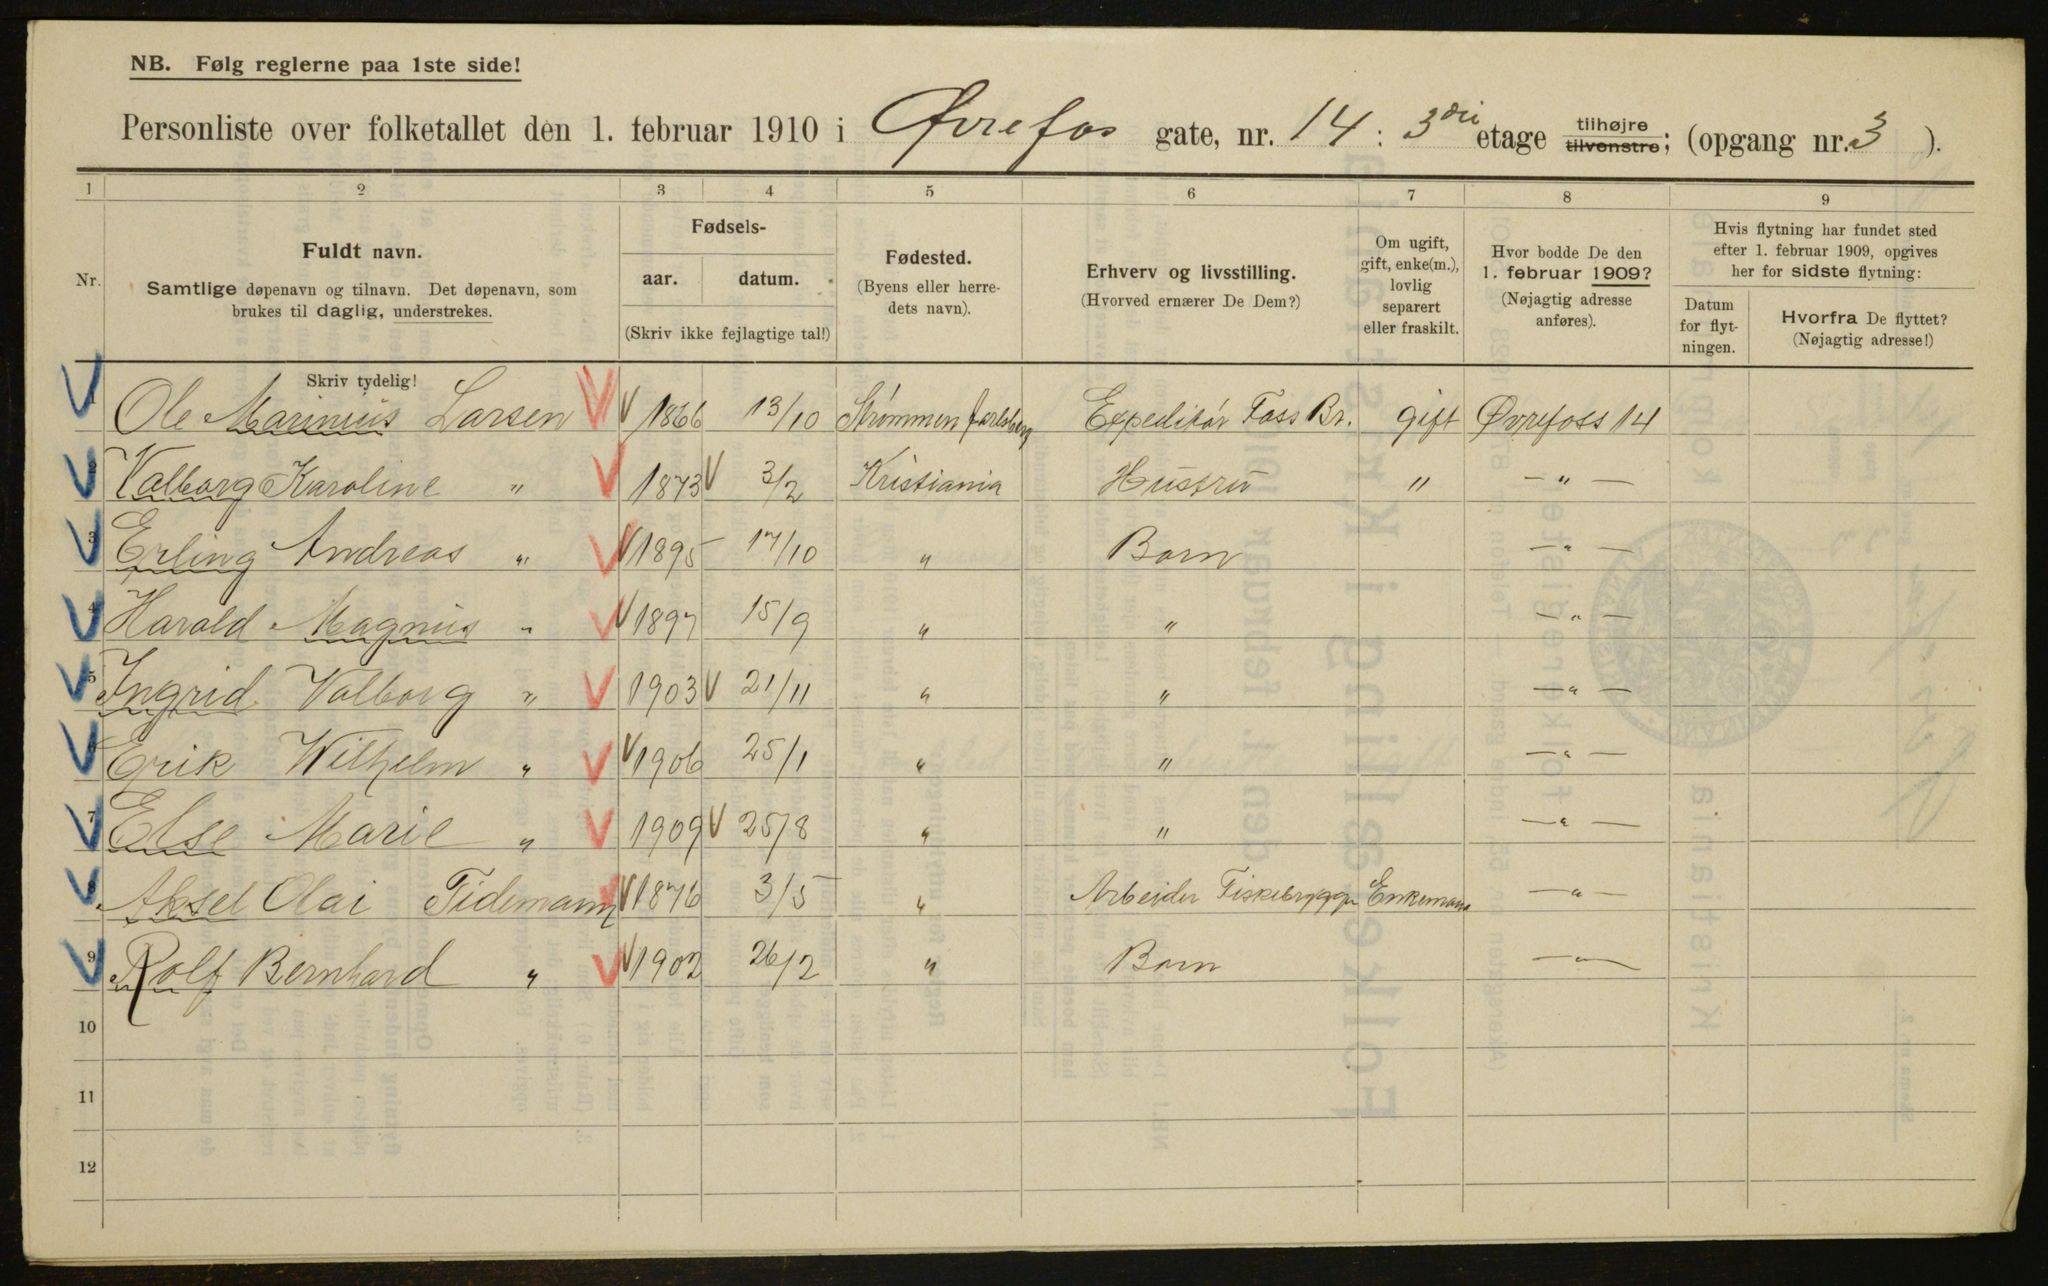 NB. Følg reglerne paa 1ste side!
Personliste over folketallet den 1. februar 1910 i Øvrefos gate, nr. 14 : 3die etage tilhøjre tilvenstre; (opgang nr. 3 ).
1 2 3 4 5 6 7 8 9
Nr. Fuldt navn. Samtlige døpenavn og tilnavn. Det døpenavn, som brukes til daglig, understrekes.
Fødsels- aar. datum. (Skriv ikke fejlagtige tal!)
Fødested. (Byens eller herredets navn).
Erhverv og livsstilling. (Hvorved ernærer De Dem?)
Om ugift, gift, enke(m.), lovlig separert eller fraskilt.
Hvor bodde De den 1. februar 1909? (Nøjagtig adresse anføres).
Hvis flytning har fundet sted efter 1. februar 1909, opgives her for sidste flytning:
Datum for flytningen. Hvorfra De flyttet? (Nøjagtig adresse!)
Skriv tydelig!
1 Ole Marinius Larsen 1866 13/10 Strømmen Jarlsberg Expeditør Foss Br. gift Øvrefoss 14
2 Valborg Karoline " 1873 3/2 Kristiania Hustru " — " —
3 Erling Andreas " 1895 17/10 " Barn — " —
4 Harald Magnus " 1897 15/9 " " — " —
5 Ingrid Valborg " 1903 21/11 " " — " —
6 Erik Wilhelm " 1906 25/1 " " — " —
7 Else Marie " 1909 25/8 " " — " —
8 Aksel Olai Tidemann 1876 3/5 " Arbeider Fiskebrygge Enkemann — " —
9 Rolf Bernhard " 1902 26/2 " Barn — " —
10
11
12